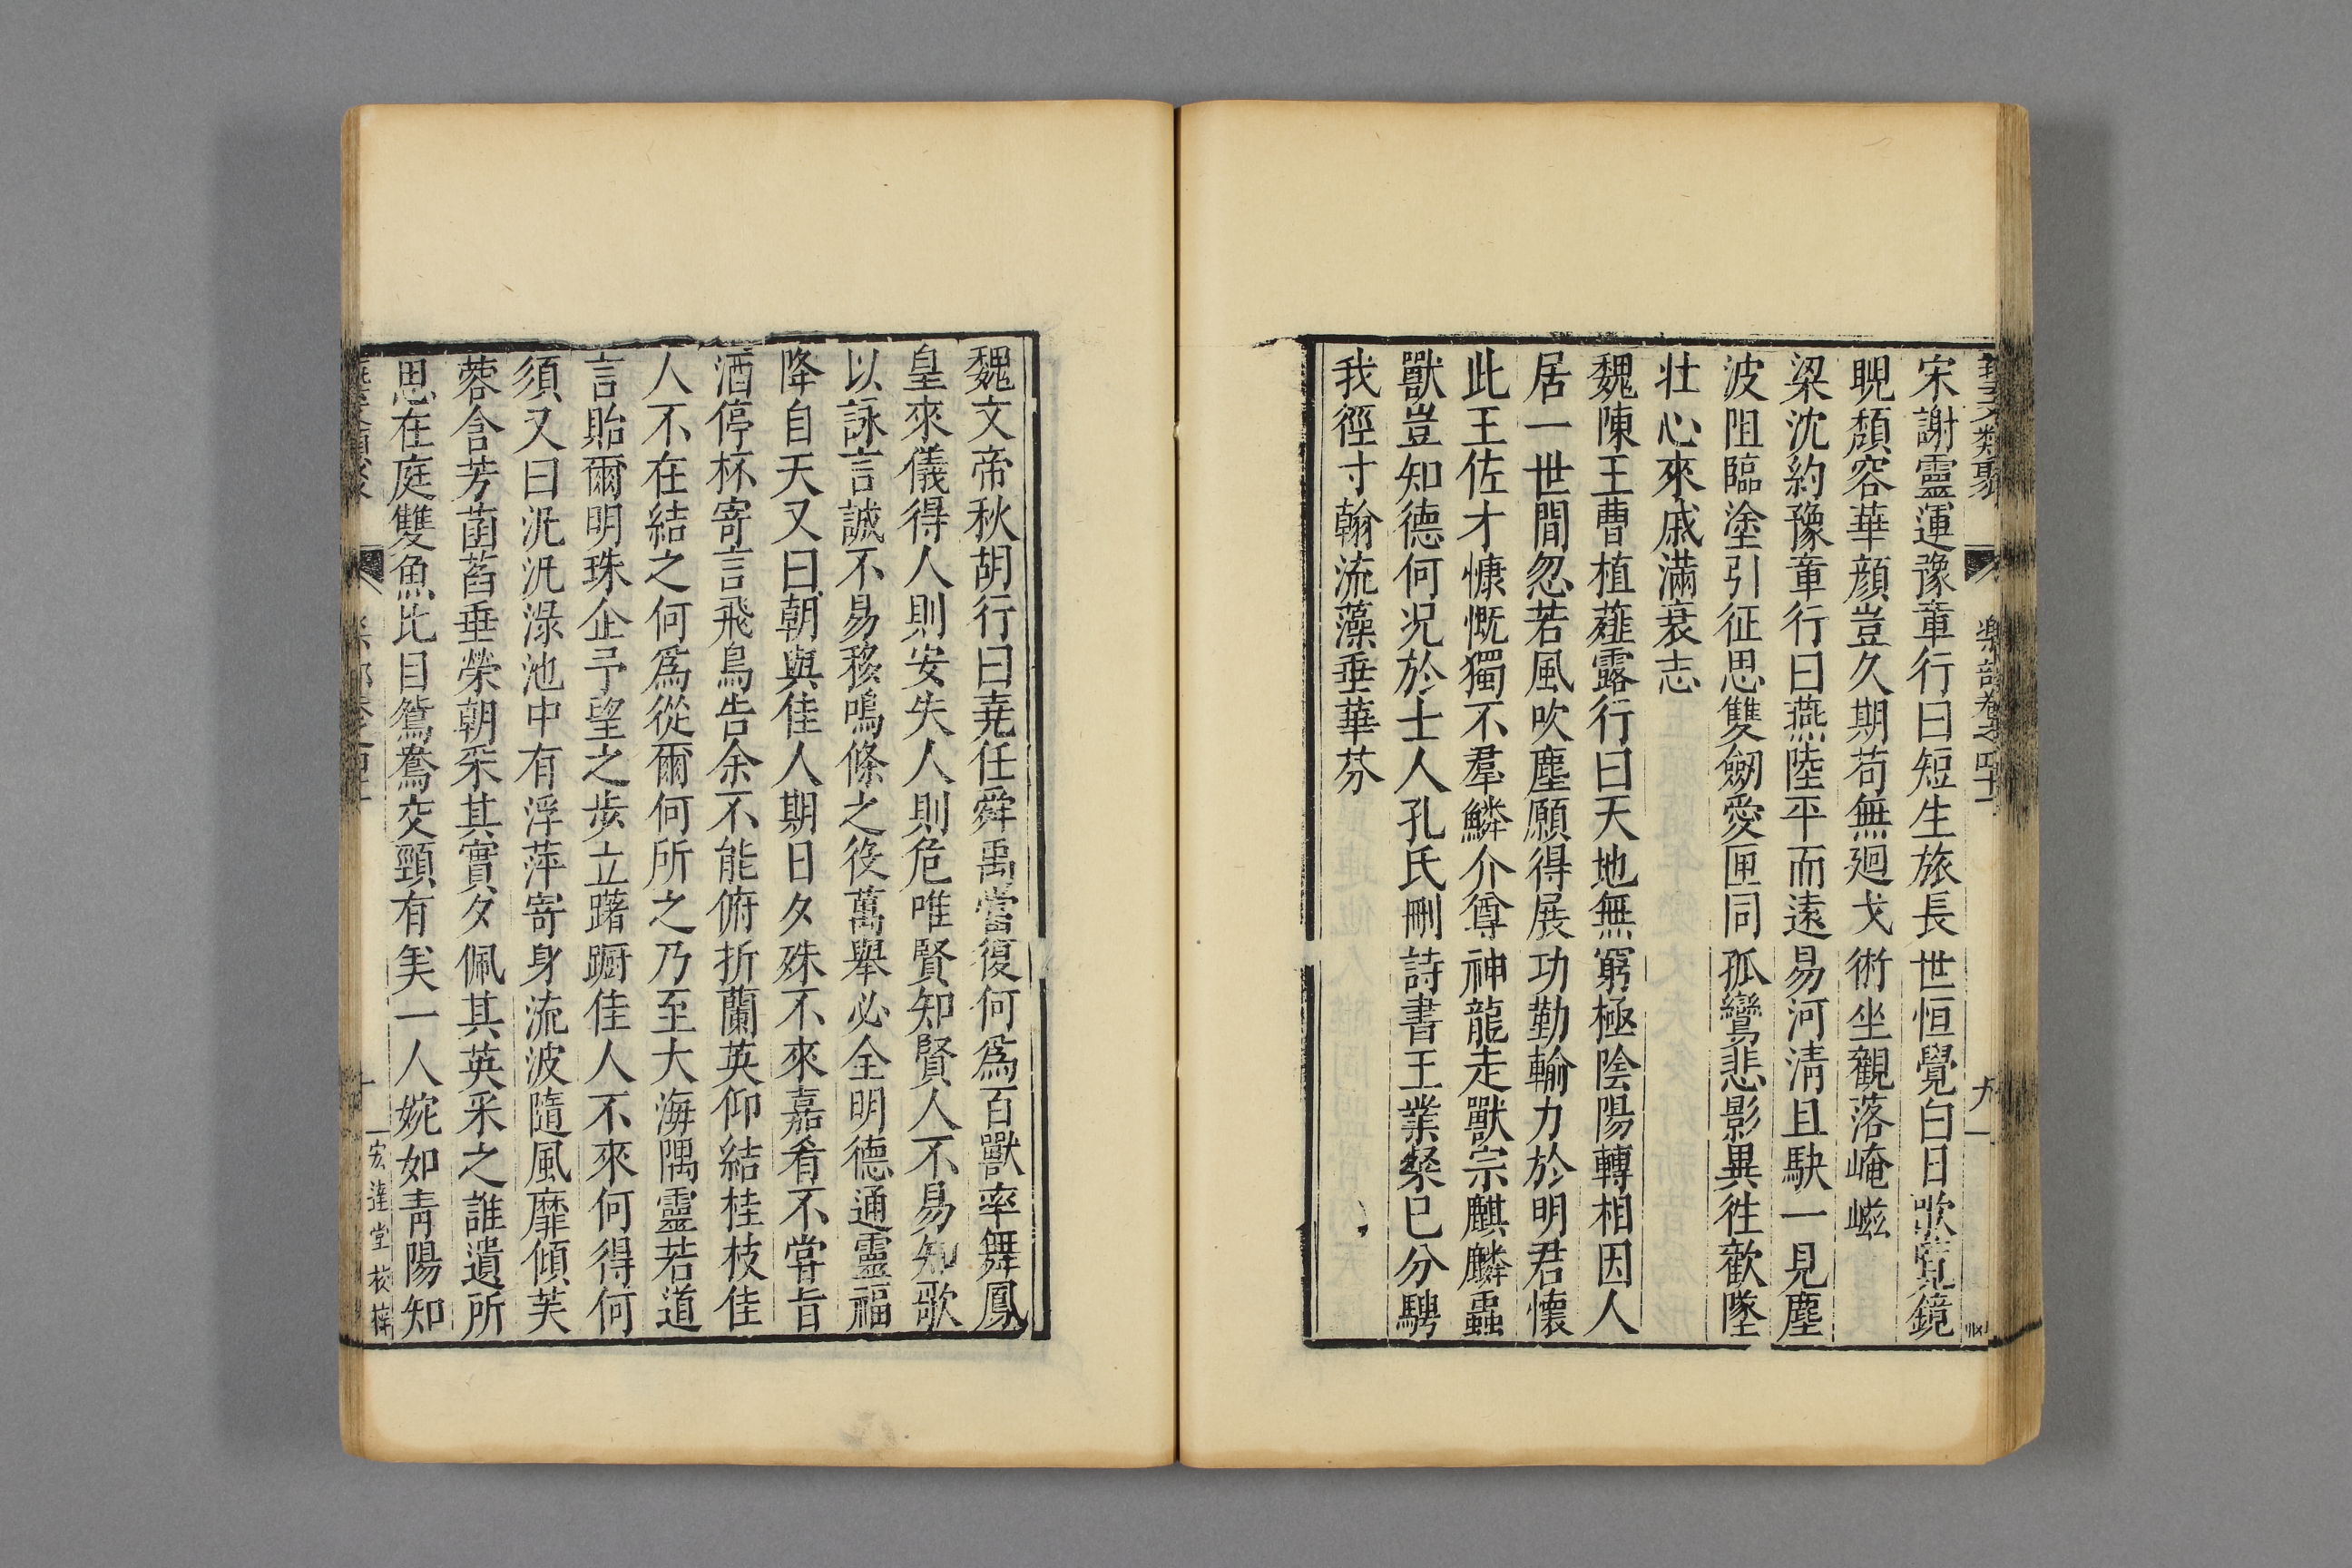 藝文類聚 樂部卷之四十一 九
宋謝靈運豫章行曰短生旅長世恒覺白日欹覽鏡
睨頹容華顏豈久期苟無廻戈術坐觀落崦嵫
梁沈約豫章行曰燕陸平而遠易河清且駃一見塵
波阻臨塗引征思雙劒愛匣同孤鸞悲影異徃歡墜
壮心來戚滿衰志
魏陳王曹植薤露行曰天地無窮極陰陽轉相因人
居一世間忽若風吹塵願得展功勤輸力於明君懷
此王佐才慷慨獨不羣鱗介尊神龍走獸宗麒麟蟲
獸豈知德何况於士人孔氏刪詩書王業粲已分騁
我徑寸翰流藻垂華芬
魏文帝秋胡行曰堯任舜禹當復何爲百獸率舞鳳
皇來儀得人則安失人則危唯賢知賢人不易知歌
以詠言誠不易移鳴條之役萬舉必全明德通靈福
降自天又曰朝與佳人期日夕殊不來嘉肴不甞旨
酒停杯寄言飛鳥告余不能俯折蘭英仰結桂枝佳
人不在結之何爲從爾何所之乃至大海隅靈若道
言貽爾明珠企予望之步立躇蹰佳人不來何得何
須又曰汎汎淥池中有浮萍寄身流波隨風靡傾芙
蓉含芳菡萏垂榮朝采其實夕佩其英采之誰遺所
思在庭雙魚比目鴛鴦交頸有美一人婉如青陽知
宏達堂校梓